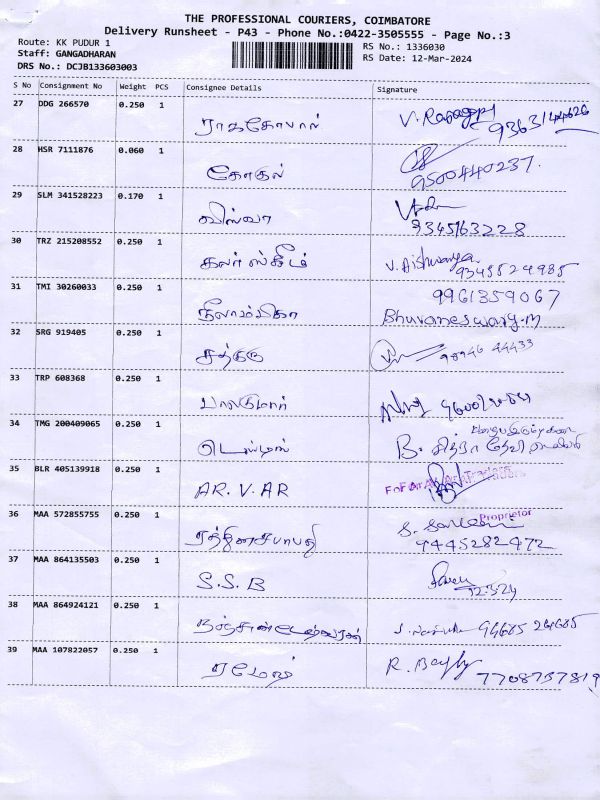 THE PROFESSIONAL COURIERS, COIMBATORE
Delivery Runsheet - P43 - Phone No.:0422-3505555 - Page No.:3
Route: KK PUDUR 1
RS No.: 1336030
Staff: GANGADHARAN
RS Date: 12-Mar-2024
DRS No.: DCJB133603003
S No Consignment No Weight PCS Consignee Details Signature
27 DDG 266570 0.250 1
ராககோபால் V. 9363144626
28 HSR 7111876 0.060 1
கோகுல் 9500440237.
29 SLM 341528223 0.170 1
விஸ்வா 9345163228
30 TRZ 215208552 0.250 1
கலர் ஸ்கீம் V. Aishwarya 9345524985
31 TMI 30260033 0.250 1 9961359067
நீலாம்பிகா Bhuvaneswary.M
32 SRG 919405 0.250 1
சத்குரு 98946 44433
33 TRP 608368 0.250 1
பாலகுமார்
34 TMG 200409065 0.250 1
B. சித்ரா தேவி
35 BLR 405139918 0.250 1
AR. V. AR
Proprietor
36 MAA 572855755 0.250 1
ரத்தினசபாபதி S. 9445282472
37 MAA 864135503 0.250 1
S.S.B 12.3.24
38 MAA 864924121 0.250 1
94685 264685
39 MAA 107822057 0.250 1
ரமேஷ் R. 7708737819